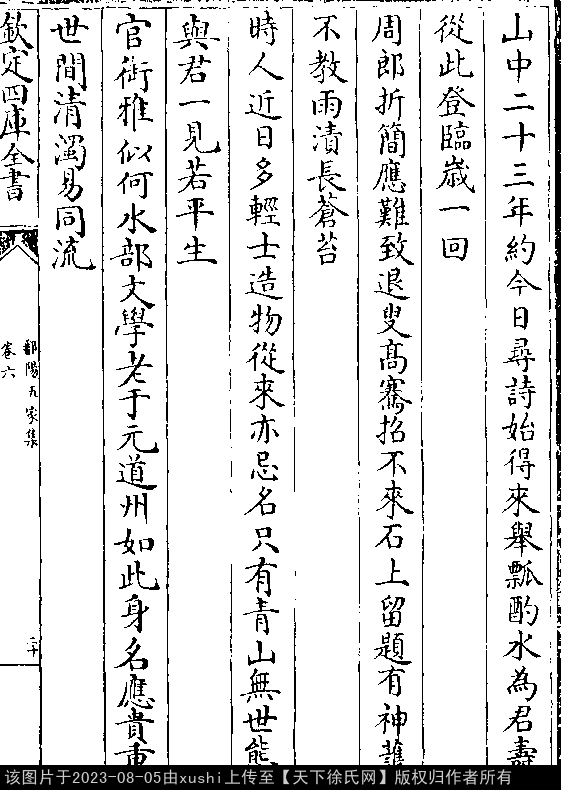 山中二十三年約今日尋詩始得來舉瓢酌水為君壽
從此登臨歲一回
周郎折簡應難致退叟高騫招不來石上留題有神護
不教雨漬長蒼苔
時人近日多輕士造物從來亦忌名只有青山無世態
與君一見若平生
官銜雅似何水部文學老于元道州如此身名應貴重
世間清濁易同流
欽定四庫全書
鄱陽五家集
卷六
二十
该图片于2023-08-05由xushi上传至【天下徐氏网】版权归作者所有